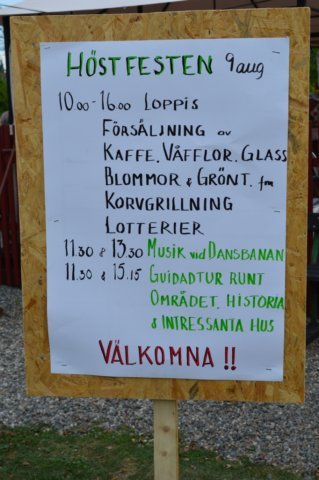 HÖSTFESTEN 9 aug
10.00-16.00 LOPPIS
FÖRSÄLJNING av
KAFFE, VÅFFLOR, GLASS
BLOMMOR & GRÖNT, fm
KORVGRILLNING
LOTTERIER
11.30 & 13.30 MUSIK vid DANSBANAN
11.30 & 15.15 GUIDADTUR RUNT
OMRÅDET, HISTORIA
& INTRESSANTA HUS
VÄLKOMNA !!